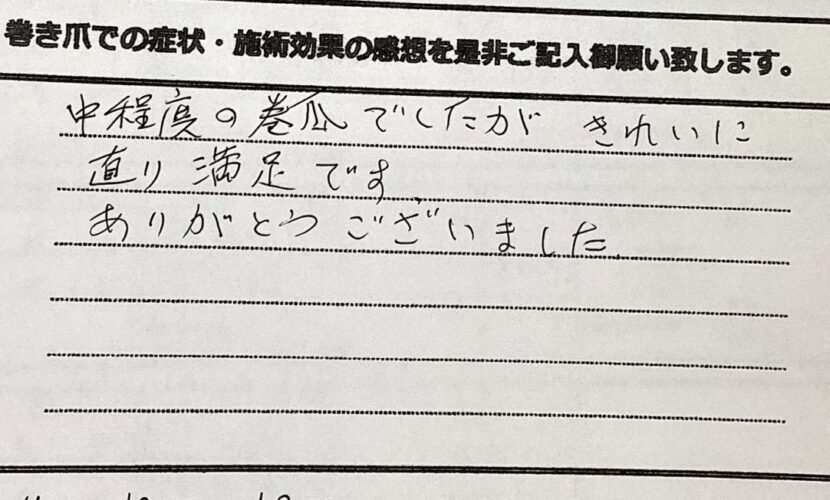 巻き爪での症状・施術効果の感想を是非ご記入御願い致します。
中程度の巻爪でしたが きれいに
直り 満足です
ありがとう ございました.